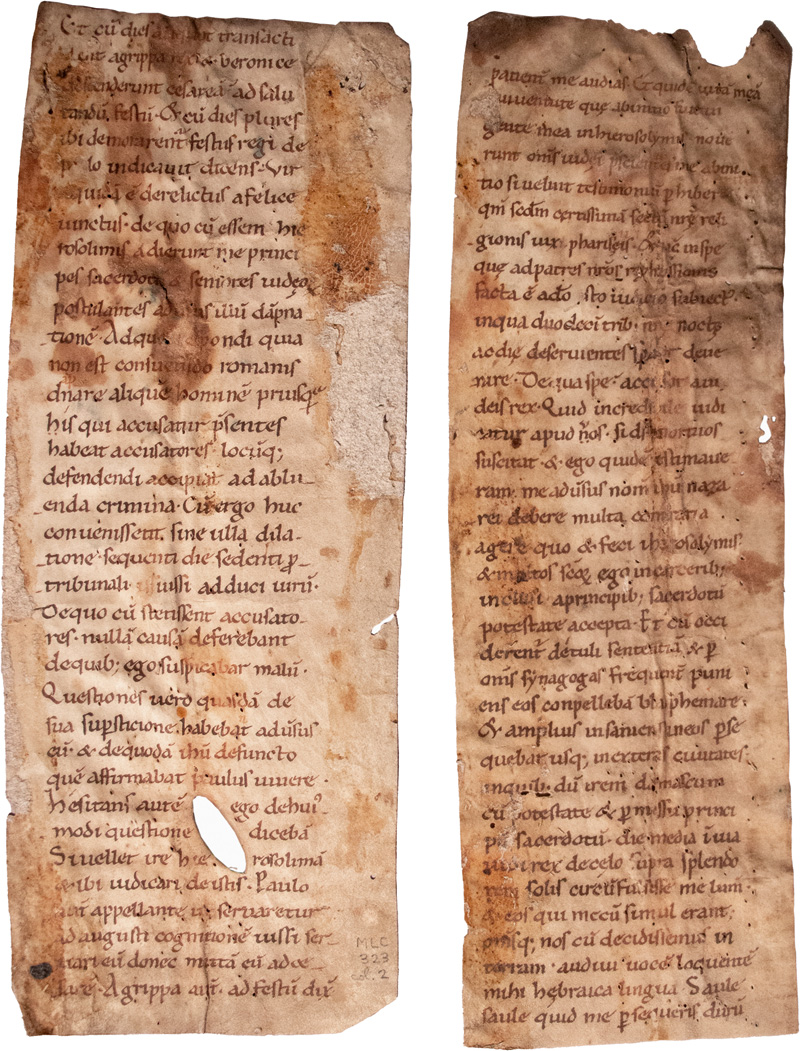 Et cū dies aliquot transacti
eēnt agrippa rex & veronice
descenderunt cesareā ad salu
tandū festū · & cū dies plures
ibi demorarent̄ festus regi de
paulo indicauit dicens · Vir
quidā ē derelictus a felice
uinctus · de quo cū essem hie
rosolimis adierunt me princi
pes sacerdotū & seniores iudeoꝝ
postulantes aduersus illū dāpna
tionē · Ad quos respondi quia
non est consuetudo romanis
dnare alique hominē priusꝗ
his qui accusatur p̄sentes
habeat accusatores · locūq;
defendendi accipiat ad ablu
enda crimina · Cū ergo huc
conuenissent̄ sine ulla dila
tione · sequenti die sedens ꝑ
tribunali · iussi adduci uirū ·
De quo cū stetissent accusato
res · nullā causā deferebant
de quib; ego suspicabar malū ·
Questiones uero quasdā de
sua suꝑsticione habebāt adūsus
eū · & de quodā ihū defuncto
quē affirmabat paulus uiuere ·
hesitans autē ego dehui'
modi questione dicebā
Si uellet ire hie rosolimā
& ibi iudicari de istis · Paulo
aūt appellante ut seruaretur
ad augusti cognitionē iussi ser
uari eū donec mittā eū ad ce
sarē · Agrippa aūt · ad festū dix̄
MLC
323
col. 2
patient̄ me audias · Et quidē uitā meā
a iuuentute que ab initio fuit in
gente mea in hierosolymis noue
runt om̄s iudei p̄scientes me ab ini
tio si uelint testimoniū ꝑhibere
qm̄ scdm certissimā sectā nr̄e reli
gionis uixi phariseus · & nc̄ in spe
que ad patres nr̄os repromissionis
facta ē a dō · sto iudicio subiect'
in qua duodeci trib' nr̄e nocte
ac die deseruientes sperant deue
nire · De qua spe · accusor a iu
deis rex · Quid incredibile iudi
catur apud uos · si ds̄ mortuos
suscitat · & ego quidē estimaue
ram · me adūsus nom̄ ihū naza
rei debere multa contraria
agere quo & feci iherosolymis ·
& multos scōꝝ ego in carcerib;
inclusi · a principib; sacerdotū
potestate accepta · Et cū occi
derent̄ detuli sententiā & ꝑ
om̄s synagogas frequent̄ puni
ens eos conpellebā blasphemare ·
& amplius insaniens in eos ꝑse
quebar usq; in exteras ciuitates ·
in quib; dū irem damascum
cū potestate & ꝑmissu princi
pū sacerdotū · die media in uia
uidi rex de celo supra splendo
rem solis circūfulsisse me lum̄
& eos qui mecū simul erant ·
om̄sq; nos cū decidissemus in
terram · audiui uocē loquentē
mihi hebraica lingua · Saule
saule quid me ꝑsequeris durū